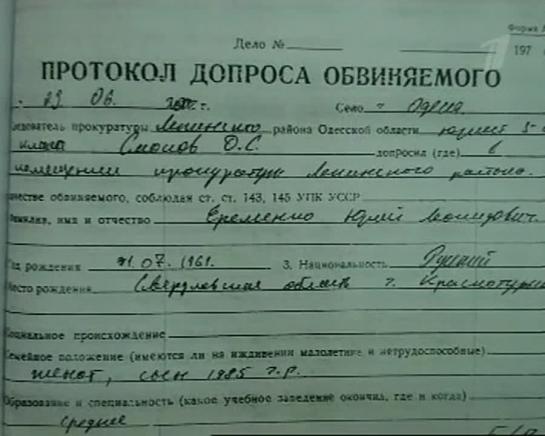 Форма
Дело №
197
ПРОТОКОЛ ДОПРОСА ОБВИНЯЕМОГО
23 06. г. Село г. Одесса
прокуратуры Ленинского района Одесской области юрист 3-
класса О.С. допросил (где) в
помещении прокуратуры Ленинского района.
честве обвиняемого, соблюдая ст. ст. 143, 145 УПК УССР
имя и отчество Еременко Юрий Леонидович.
рождения 07. 1961. 3. Национальность Русский
Место рождения Свердловская область г.
Социальное происхождение
Семейное положение (имеются ли на иждивении малолетние и нетрудоспособные)
женат, сын 1985 г.р.
Образование и специальность (какое учебное заведение окончил, где и когда)
среднее